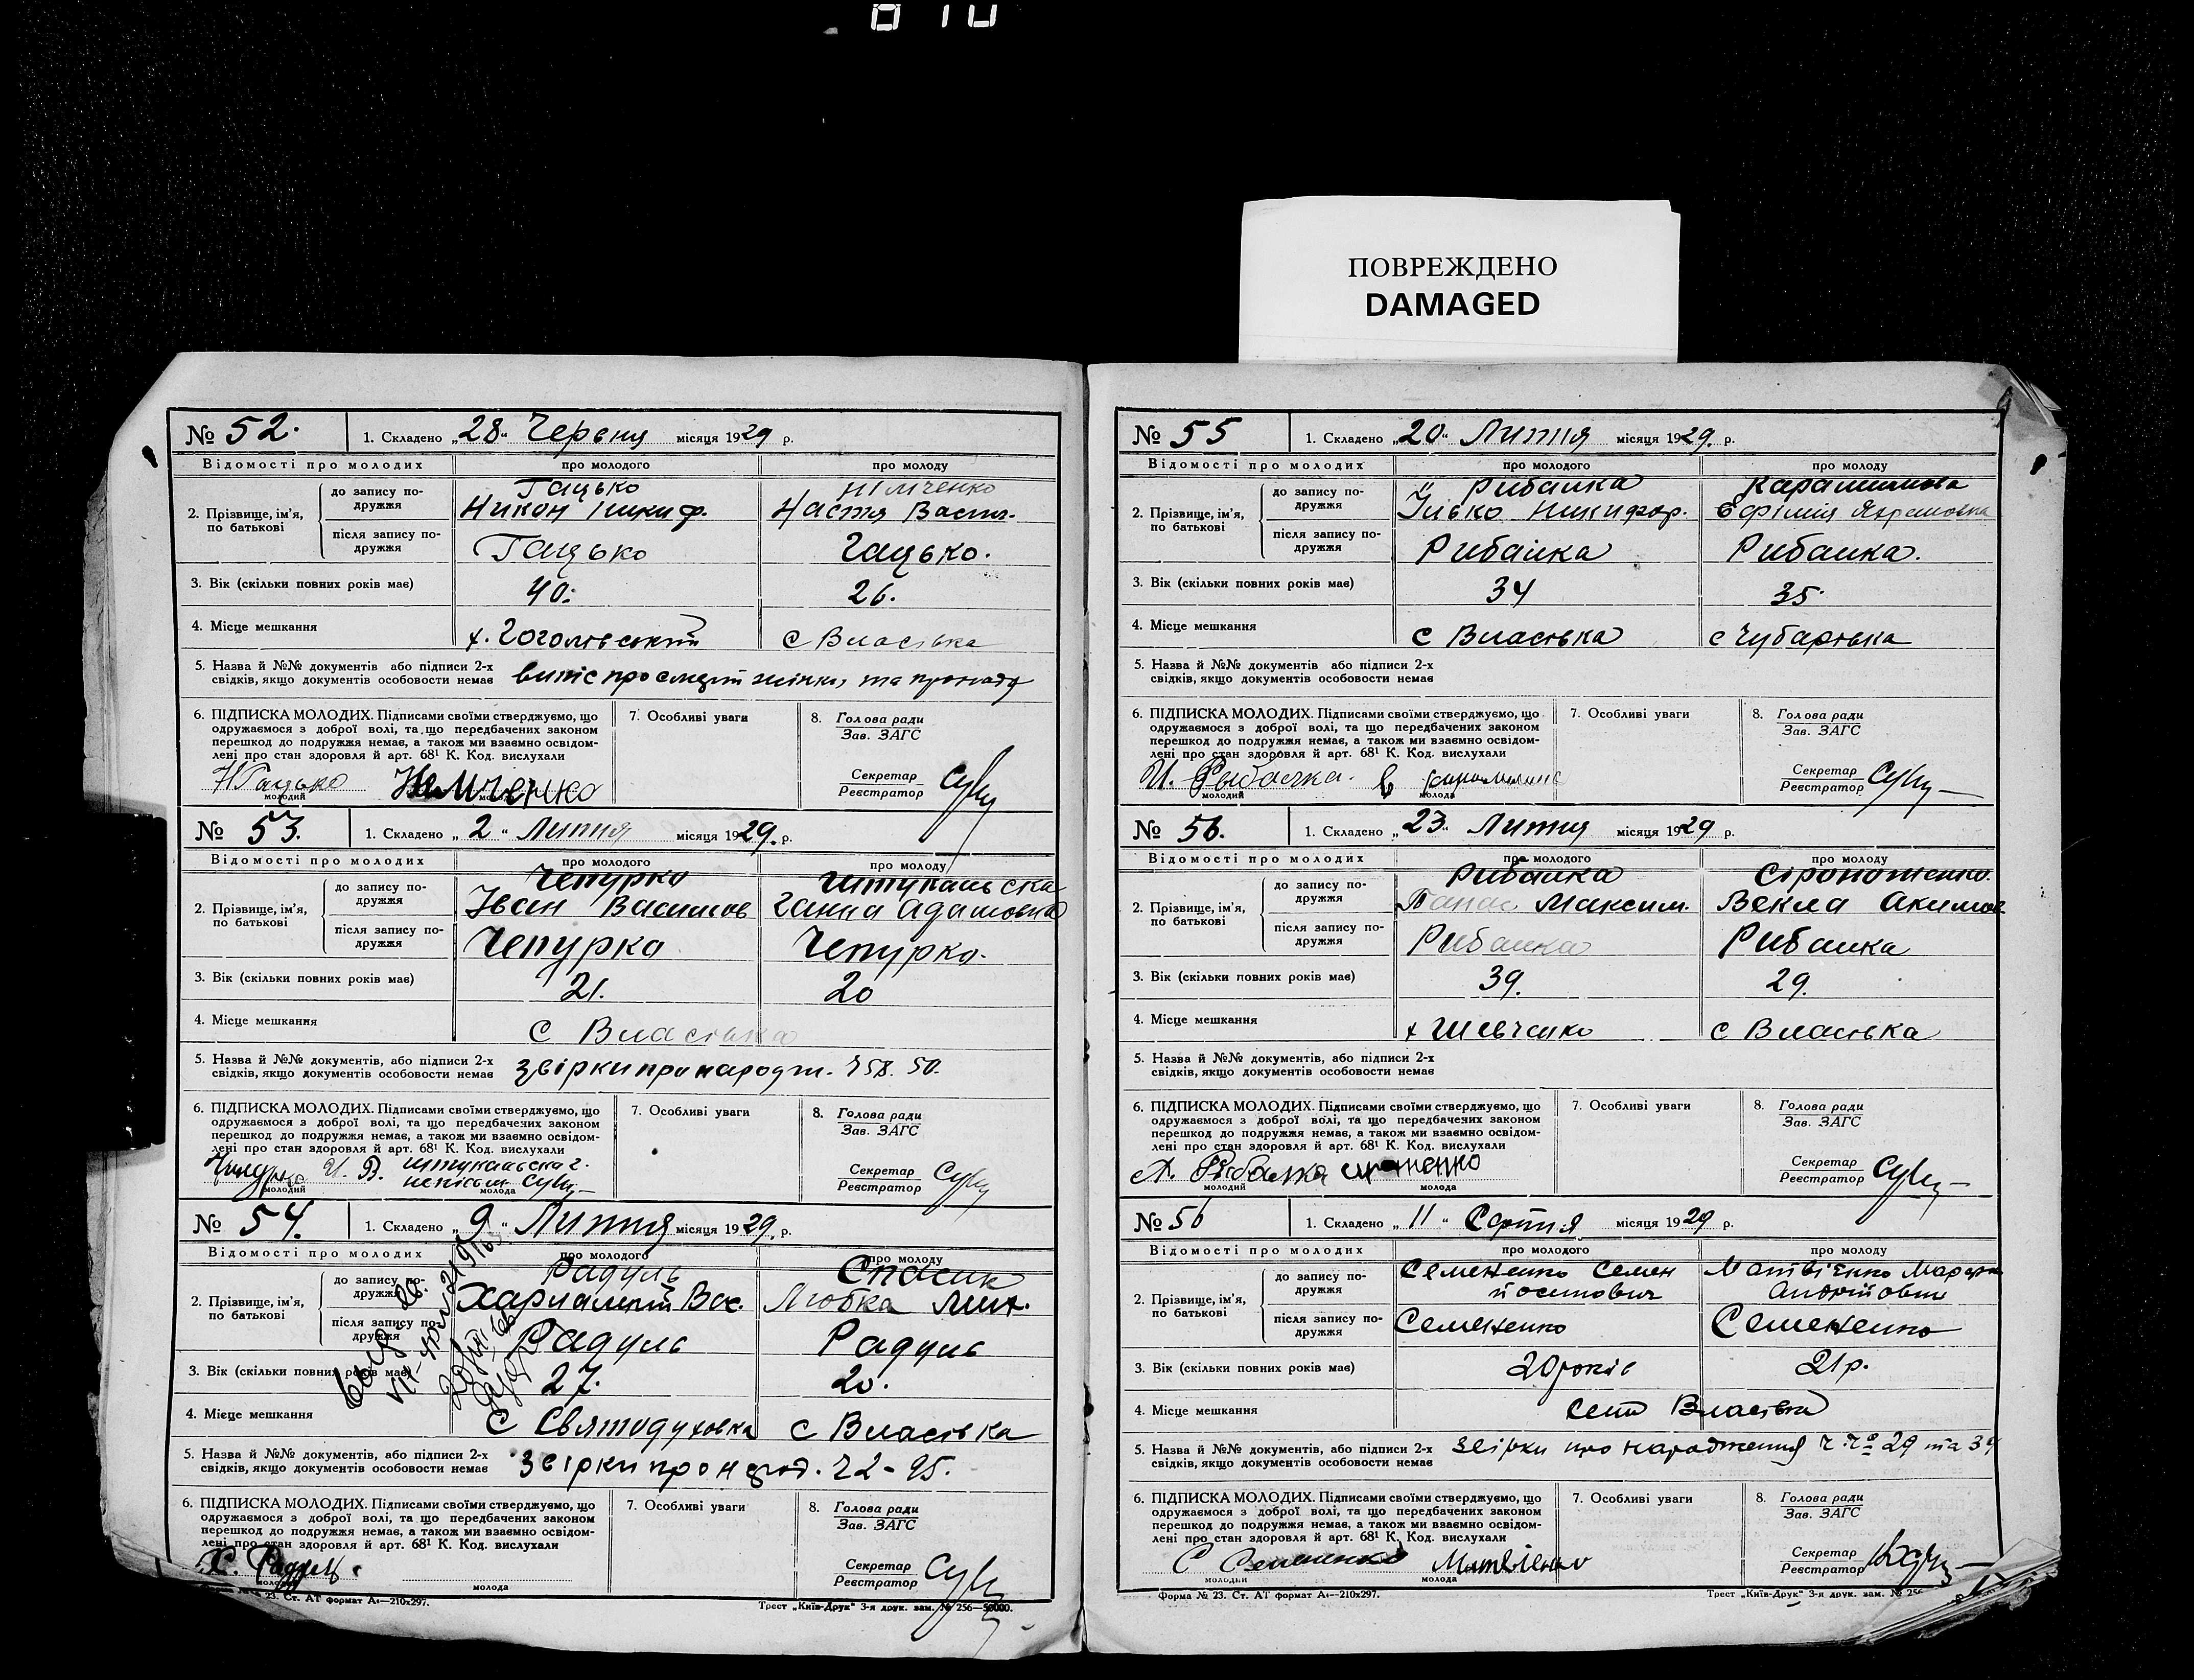 ПОВРЕЖДЕНО
DAMAGED
№ 52. 1. Складено „28" Червня місяця 1929 р.
Відомості про молодих про молодого про молоду
2. Прізвище, ім'я, по батькові
до запису по-дружжя
Гацько Німченко
Никон Никиф. Настя Васил.
після запису по-дружжя
Гацько Гацько.
3. Вік (скільки повних років має) 40. 26.
4. Місце мешкання х. Гоголівський с Власівка
5. Назва й №№ документів або підписи 2-х
свідків, якщо документів особовости немає витяг про смерть жінки, та
6. ПІДПИСКА МОЛОДИХ. Підписами своїми стверджуємо, що 7. Особливі уваги 8. Голова ради
одружаємося з доброї волі, та що передбачених законом Зав. ЗАГС
перешкод до подружжя немає, а також ми взаємно освідом-
лені про стан здоровля й арт. 68¹ К. Код. вислухали
НГацько Немченко Секретар
молодий молода Реєстратор
№ 53. 1. Складено „2" Липня місяця 1929. р.
Відомості про молодих про молодого про молоду
2. Прізвище, ім'я, по батькові
до запису по-дружжя
Чепурко Штукальська
Іван Васильов Ганна Адамовна
після запису по-дружжя
Чепурко Чепурко.
3. Вік (скільки повних років має) 21. 20
4. Місце мешкання с Власівка
5. Назва й №№ документів, або підписи 2-х
свідків, якщо документів особовости немає звірки про народж. Ч 58. 50.
6. ПІДПИСКА МОЛОДИХ. Підписами своїми стверджуємо, що 7. Особливі уваги 8. Голова ради
одружаємося з доброї волі, та що передбачених законом Зав. ЗАГС
перешкод до подружжя немає, а також ми взаємно освідом-
лені про стан здоровля й арт. 68¹ К. Код. вислухали
И. В. Штукальська Г. Секретар
молодий молода Реєстратор
№ 54. 1. Складено „9" Липня місяця 1929. р.
Відомості про молодих про молодого про молоду
2. Прізвище, ім'я, по батькові
до запису по-дружжя
Радуль Спасик
Харлампій Вас. Любка Мих.
після запису по-дружжя
Радуль Радуль
3. Вік (скільки повних років має) 27. 20.
4. Місце мешкання с Святодуховка с Власівка
5. Назва й №№ документів, або підписи 2-х
свідків, якщо документів особовости немає звірки про народ. Ч 2-95.
6. ПІДПИСКА МОЛОДИХ. Підписами своїми стверджуємо, що 7. Особливі уваги 8. Голова ради
одружаємося з доброї волі, та що передбачених законом Зав. ЗАГС
перешкод до подружжя немає, а також ми взаємно освідом-
лені про стан здоровля й арт. 68¹ К. Код. вислухали
Х. Радуль Секретар
молода Реєстратор
23. Ст. АТ формат А₄—210х297. Трест „Київ-Друк" 3-я друк. зам. № 256—50000.
№ 55 1. Складено „20" Липня місяця 1929. р.
Відомості про молодих про молодого про молоду
2. Прізвище, ім'я, по батькові
до запису по-дружжя
Рибалка
Ілько Никифор. Єфімія
після запису по-дружжя
Рибалка Рибалка.
3. Вік (скільки повних років має) 34 35.
4. Місце мешкання с Власівка с Чубарівка
5. Назва й №№ документів або підписи 2-х
свідків, якщо документів особовости немає
6. ПІДПИСКА МОЛОДИХ. Підписами своїми стверджуємо, що 7. Особливі уваги 8. Голова ради
одружаємося з доброї волі, та що передбачених законом Зав. ЗАГС
перешкод до подружжя немає, а також ми взаємно освідом-
лені про стан здоровля й арт. 68¹ К. Код. вислухали
И. Рыбалка. Секретар
молодий молода Реєстратор
№ 56. 1. Складено „23" Липня місяця 1929 р.
Відомості про молодих про молодого про молоду
2. Прізвище, ім'я, по батькові
до запису по-дружжя
Рибалка
Панас Максим. Векла Акимов
після запису по-дружжя
Рибалка Рибалка
3. Вік (скільки повних років має) 39. 29.
4. Місце мешкання х Шевченко с Власівка
5. Назва й №№ документів, або підписи 2-х
свідків, якщо документів особовости немає
6. ПІДПИСКА МОЛОДИХ. Підписами своїми стверджуємо, що 7. Особливі уваги 8. Голова ради
одружаємося з доброї волі, та що передбачених законом Зав. ЗАГС
перешкод до подружжя немає, а також ми взаємно освідом-
лені про стан здоровля й арт. 68¹ К. Код. вислухали
А. Рибалка Секретар
молодий молода Реєстратор
№ 56 1. Складено „11" Серпня місяця 1929 р.
Відомості про молодих про молодого про молоду
2. Прізвище, ім'я, по батькові
до запису по-дружжя
Семененко Семен Матвієнко
Йосипович Андріївна
після запису по-дружжя
Семененко Семененко
3. Вік (скільки повних років має) 20 років 21 р.
4. Місце мешкання село Власівка
5. Назва й №№ документів, або підписи 2-х
свідків, якщо документів особовости немає звірки про народження Ч.Ч. 29 та 34
6. ПІДПИСКА МОЛОДИХ. Підписами своїми стверджуємо, що 7. Особливі уваги 8. Голова ради
одружаємося з доброї волі, та що передбачених законом Зав. ЗАГС
перешкод до подружжя немає, а також ми взаємно освідом-
лені про стан здоровля й арт. 68¹ К. Код. вислухали
С Семененко Матвієнко Секретар
молодий молода Реєстратор
Форма № 23. Ст. АТ формат А₄—210х297. Трест „Київ-Друк" 3-я друк. зам. № 256